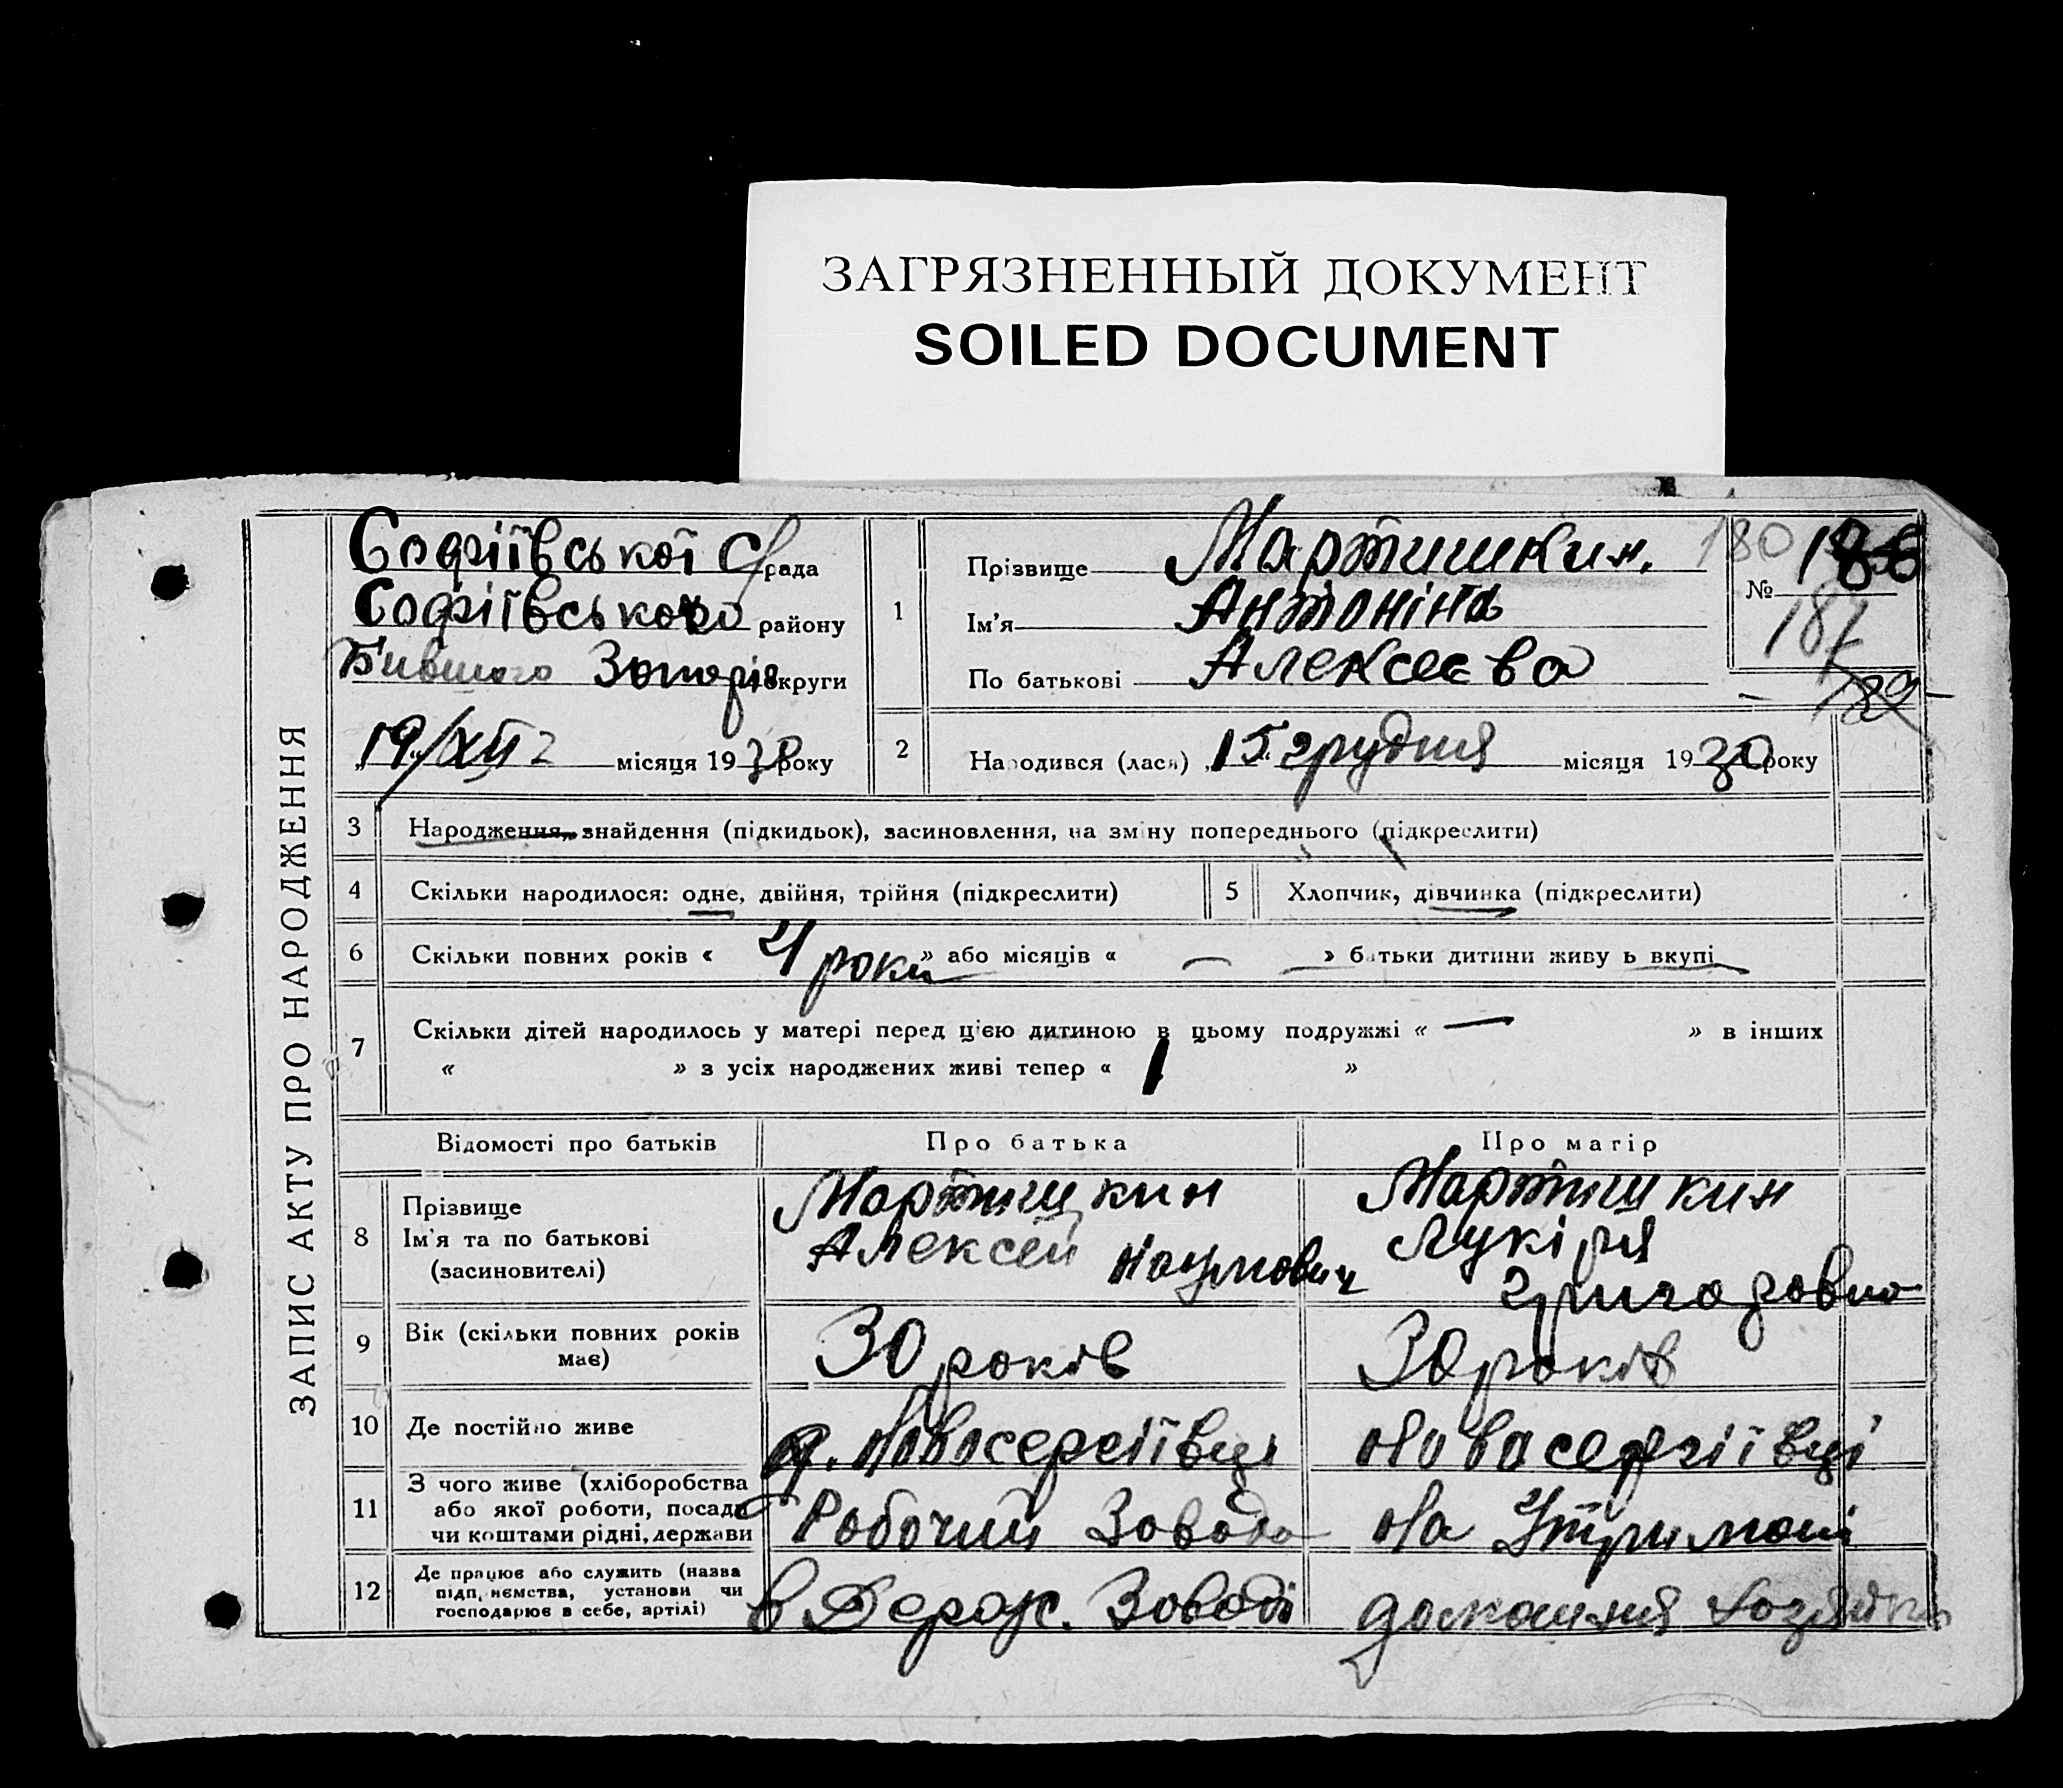 ЗАГРЯЗНЕННЫЙ ДОКУМЕНТ
SOILED DOCUMENT
ЗАПИС АКТУ ПРО НАРОДЖЕННЯ
Софіївської с/рада
Софіївського району
Бившого Запоріз округи
19/XII місяця 1930 року
1 Прізвище Мартишкин.
Ім'я Антоніна
По батькові Алексеева
180 № 186
187
189
2 Народився (лася) 15 грудня місяця 1930 року
3 Народження, знайдення (підкидьок), засиновлення, на зміну попереднього (підкреслити)
4 Скільки народилося: одне, двійня, трійня (підкреслити)
5 Хлопчик, дівчинка (підкреслити)
6 Скільки повних років « 4 роки » або місяців « — » батьки дитини живуть вкупі
7 Скільки дітей народилось у матері перед цією дитиною в цьому подружжі « — » в інших
« » з усіх народжених живі тепер « 1 »
Відомості про батьків Про батька Про матір
8 Прізвище
Ім'я та по батькові
(засиновителі)
Мартишкин
Алексей Наумович
Мартишкин
Лукірія
Григоровна
9 Вік (скільки повних років
має)
30 років
30 років
10 Де постійно живе
Новосергіївці
Новасергіївці
11 З чого живе (хліборобства
або якої роботи, посади
чи коштами рідні, держави
Робочий Завода
На Утримані
12 Де працює або служить (назва
підприємства, установи чи
господарює в себе, артілі)
в Держ. Заводі
домашня хозяйка